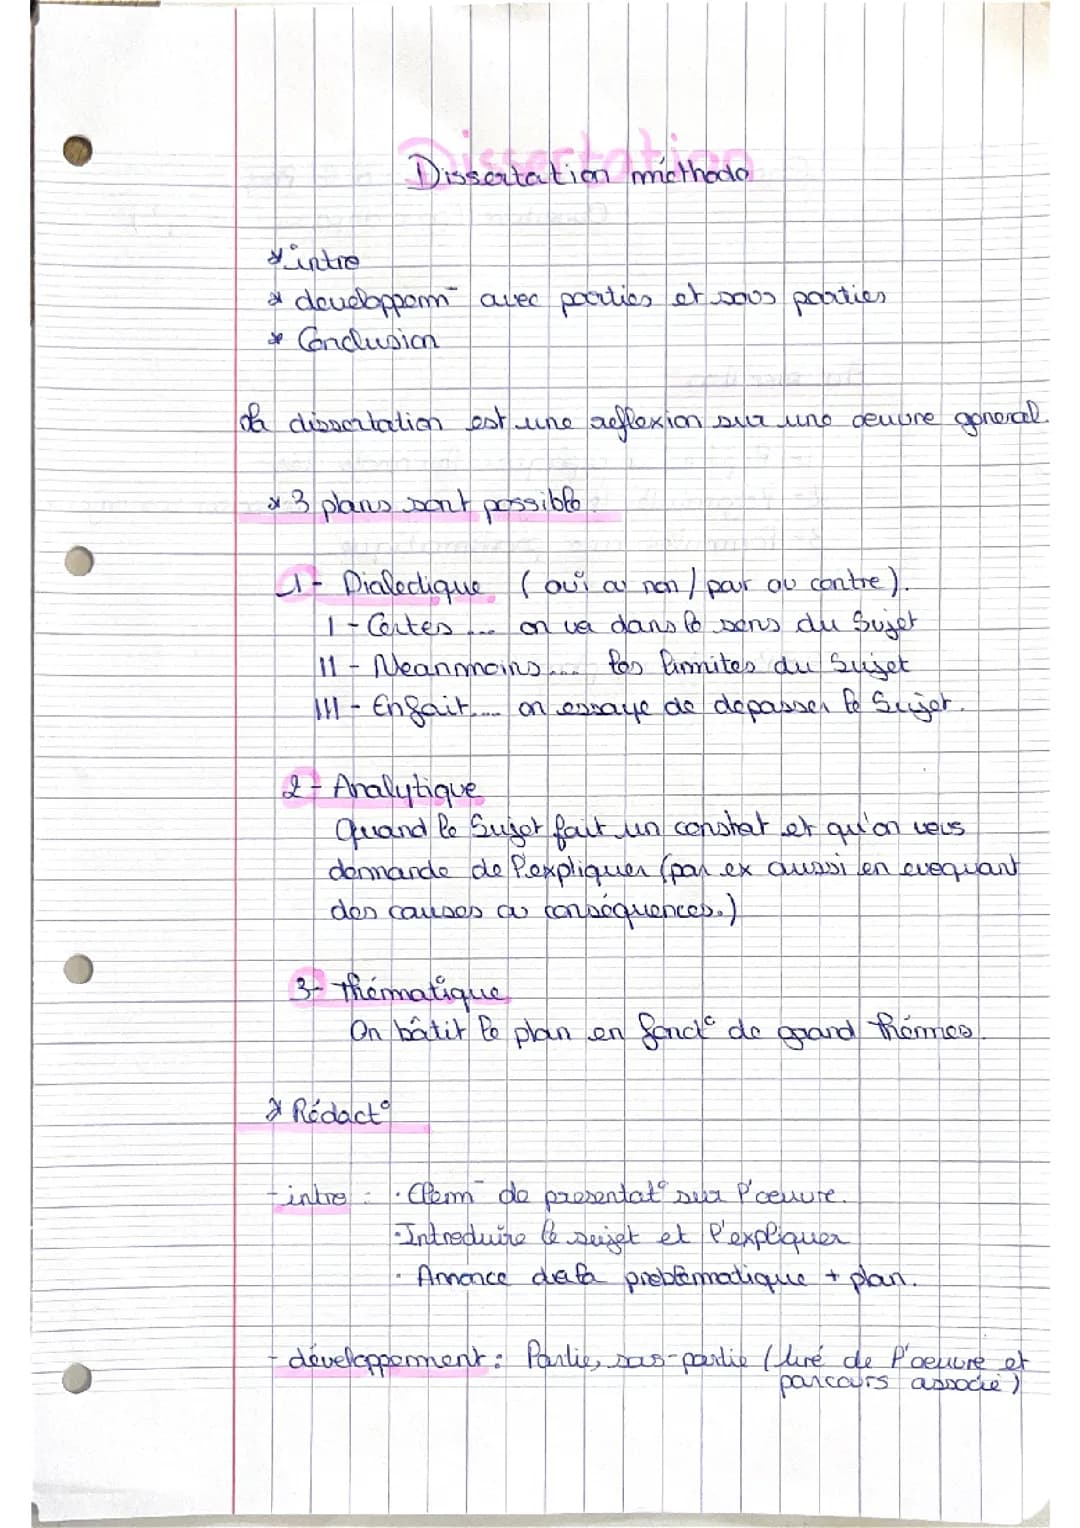 Dissertation
Dissertation méthodo
* intro
* developpem⁻ avec parties et sous parties
* Conclusion
La dissertation est une reflexion sur une oeuvre general.
* 3 plans sont possible.
1- Dialectique (oui ou non / pour ou contre).
I - Certes ... on va dans le sens du Sujet
II - Neanmoins... les limites du Sujet
III - En fait.... on essaye de depasser le Sujet.
2- Analytique
Quand le Sujet fait un constat et qu'on vous
demande de l'expliquer (par ex aussi en evoquant
des causes ou conséquences.)
3- thématique
On bâtit le plan en fonct° de grand thémes.
* Rédact°
- intro : · Elem⁻ de presentat° sur l'oeuvre.
· Introduire le sujet et l'expliquer
· Annonce de la problématique + plan.
- développement : Partie, sous-partie (tiré de l'oeuvre et
parcours associé)